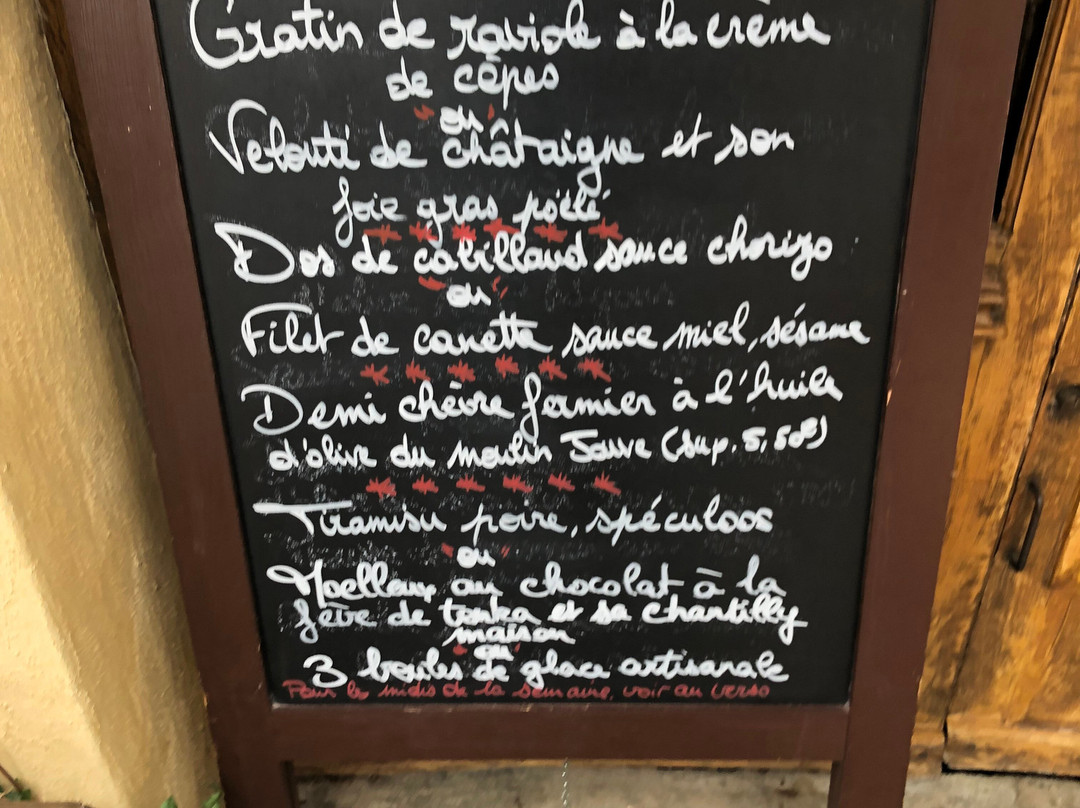 Gratin de raviole à la crème
de cèpes
"ou"
Velouté de châtaigne et son
foie gras poêlé
Dos de cabillaud sauce chorizo
"ou"
Filet de canette sauce miel, sésame
Demi chèvre fermier à l'huile
d'olive du moulin Jauve (sup. 5,50€)
Tiramisu poire, spéculoos
"ou"
Moelleux au chocolat à la
fève de tonka et sa chantilly
maison
"ou"
3 boules de glace artisanale
Pour les midis de la semaine, voir au verso